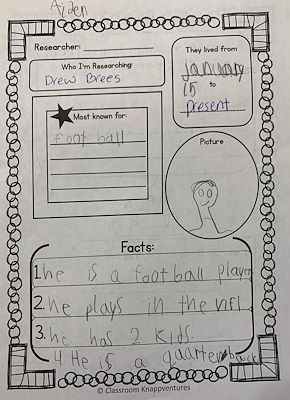 Aiden
Researcher:
Who I'm Researching:
Drew Brees
They lived from
January
15
to
present
Most known for:
football
Picture
Facts:
1. he is a football player
2. he plays in the nfl
3. he has 2 kids.
4. He is a quarterback
© Classroom Knappventures